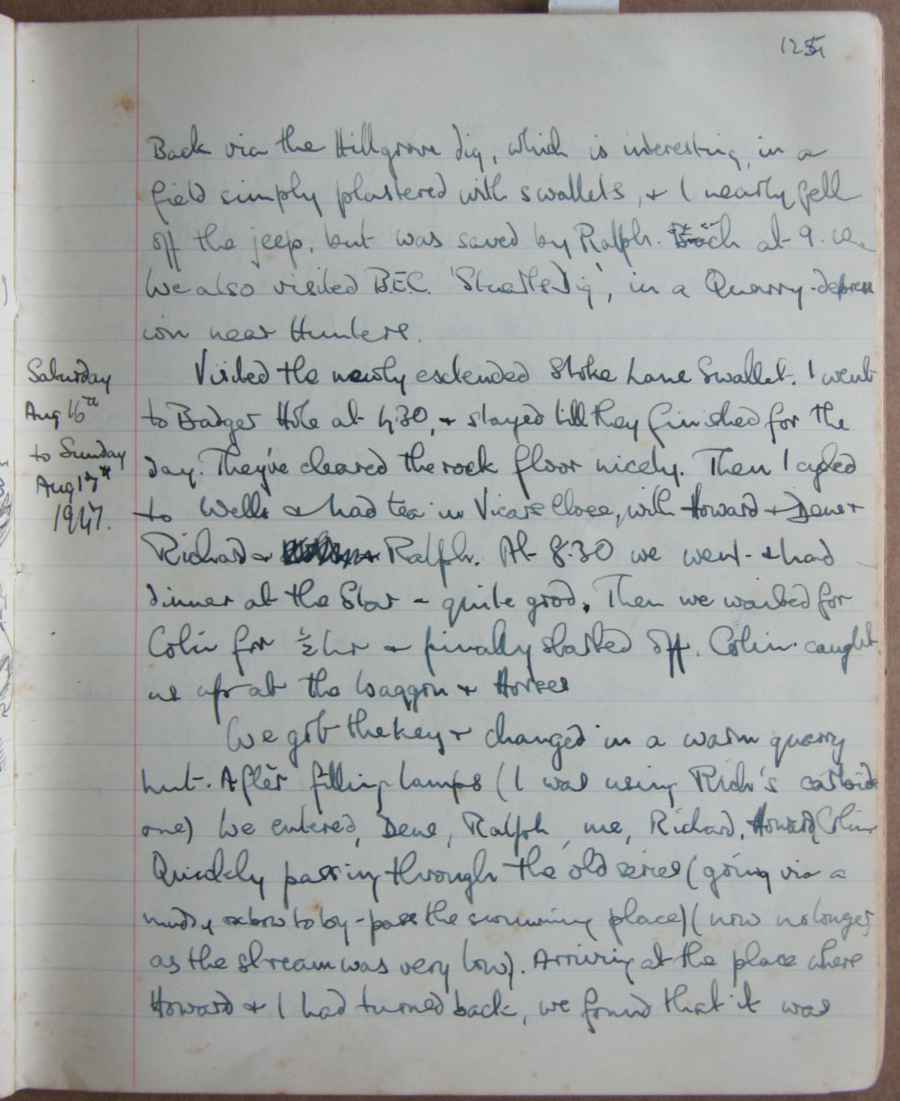 125
Back via the Hillgrove dig, which is interesting, in a
field simply plastered with swallets, & I nearly fell
off the jeep, but was saved by Ralph. Back at 9.
We also visited BEC. ' dig', in a Quarry-depress
ion near Hunters.
Saturday
Aug 16th
to Sunday
Aug 17th
1947.
Visited the newly extended Stoke Lane Swallet. I went
to Badger Hole at 4.30, & stayed till they finished for the
day. They've cleared the rock floor nicely. Then I cycled
to Wells & had tea in Vicars Close, with Howard & Dewe &
Richard & Ralph. At 8.30 we went & had
dinner at the Star - quite good. Then we waited for
Colin for ½ hr & finally started off. Colin caught
us up at the Waggon & Horses
We got the key & changed in a warm quarry
hut. After filling lamps (I was using Rich's carbide
one) We entered, Dewe, Ralph, me, Richard, Howard, Colin
Quickly passing through the old series (going via a
muddy oxbow to by-pass the swimming place) (now no longer,
as the stream was very low). Arriving at the place where
Howard & I had turned back, we found that it was